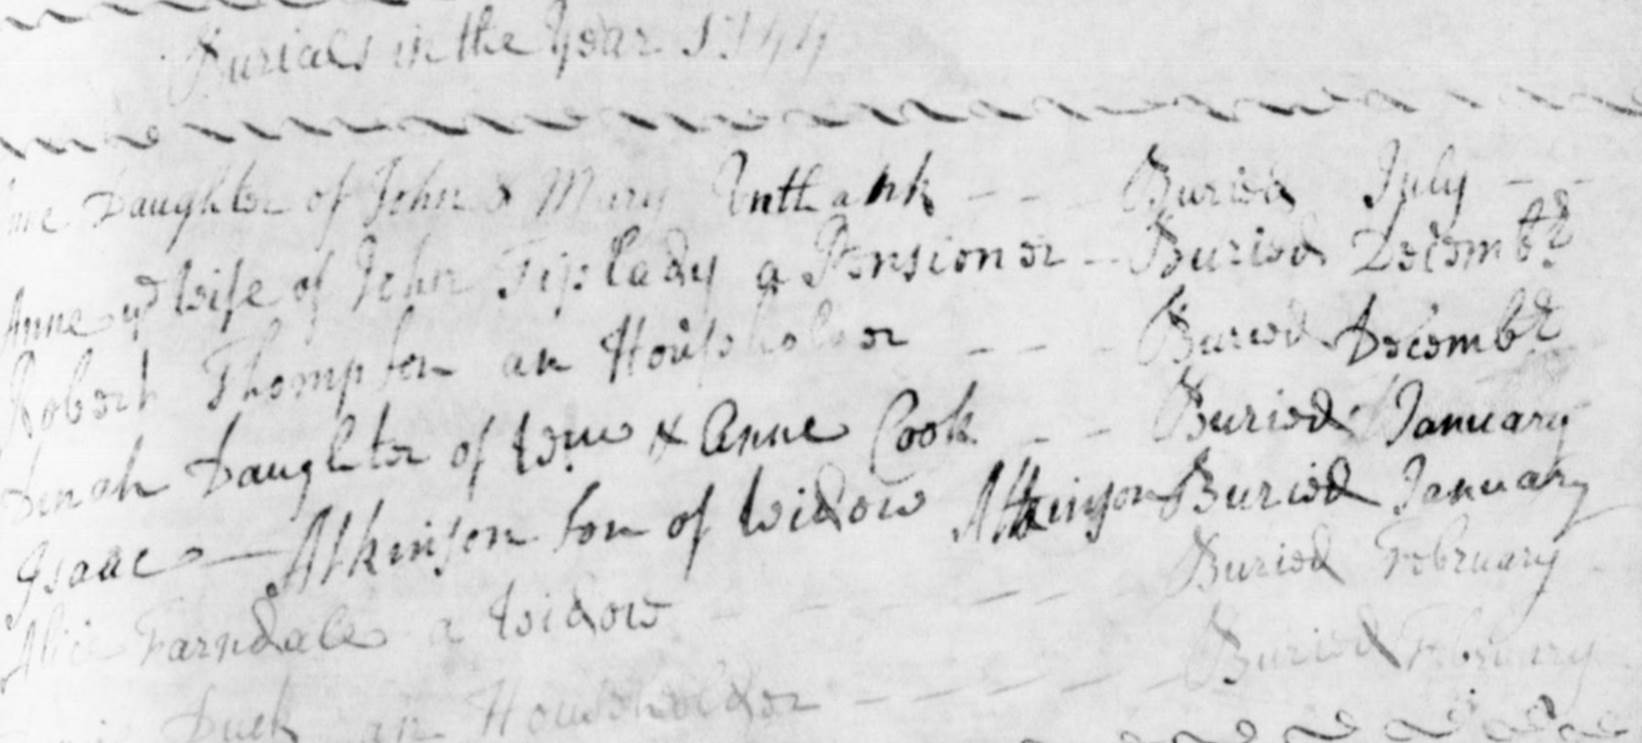 Burials in the Year 1744
Daughter of John & Mary Unthank - - - Buried July - -
Anne ye Wife of John Tiplady a Pensioner - Buried Decembr
Robert Thompson an Housholder - - - Buried Decembr
Dinah Daughter of Wm & Anne Cook - - Buried January
Isaac - Atkinson Son of Widow Atkinson Buried January
Alice Farndale a Widow - - - - - Buried February
Duck an Householder - - - - - Buried February